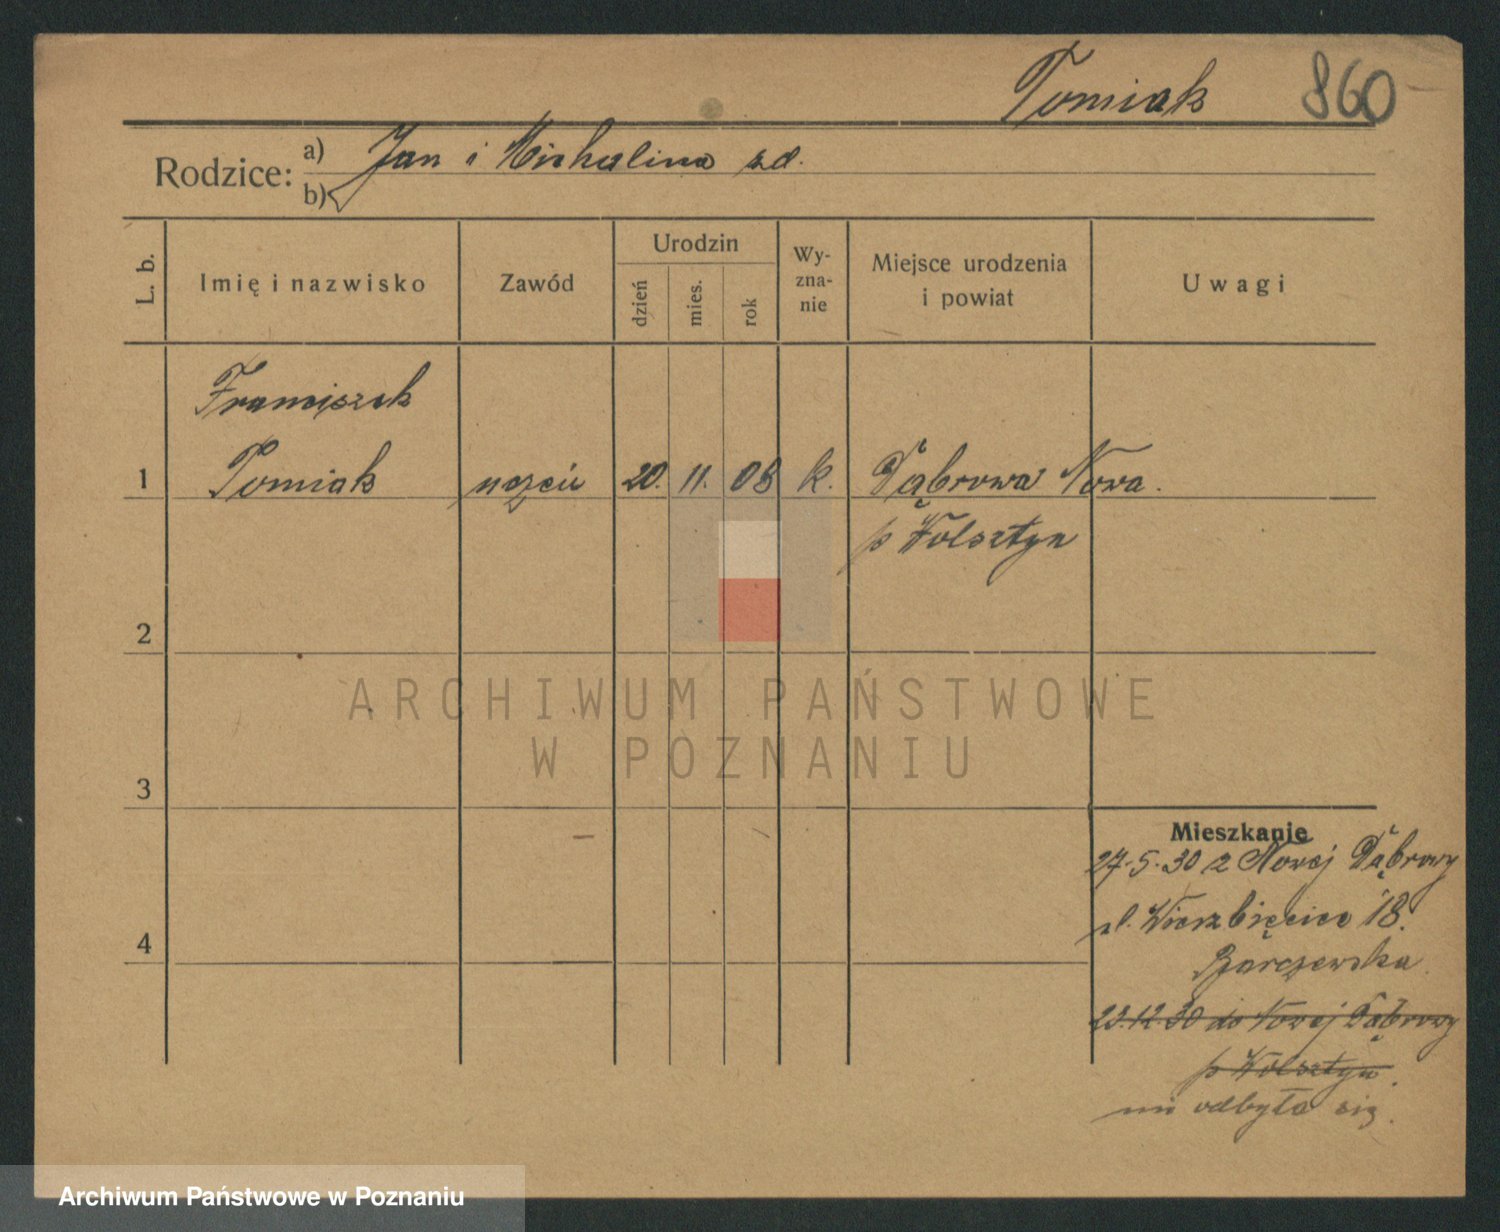 Tomiak 860
Rodzice: a) Jan i Michalina zd.
b)
L. b.
Imię i nazwisko
Zawód
Urodzin
dzień
mies.
rok
Wy-
zna-
nie
Miejsce urodzenia
i powiat
Uwagi
Franciszek
1 Tomiak uczeń 20. 11. 08 k. Dąbrowa Nowa.
p Wolsztyn
2
ARCHIWUM PAŃSTWOWE
W POZNANIU
3
Mieszkanie
27.5.30 z Nowej Dąbrowy
ul. Wierzbięcice 18.
4
23.12.30 do Nowej Dąbrowy
p Wolsztyn.
nie odbyła się.
Archiwum Państwowe w Poznaniu